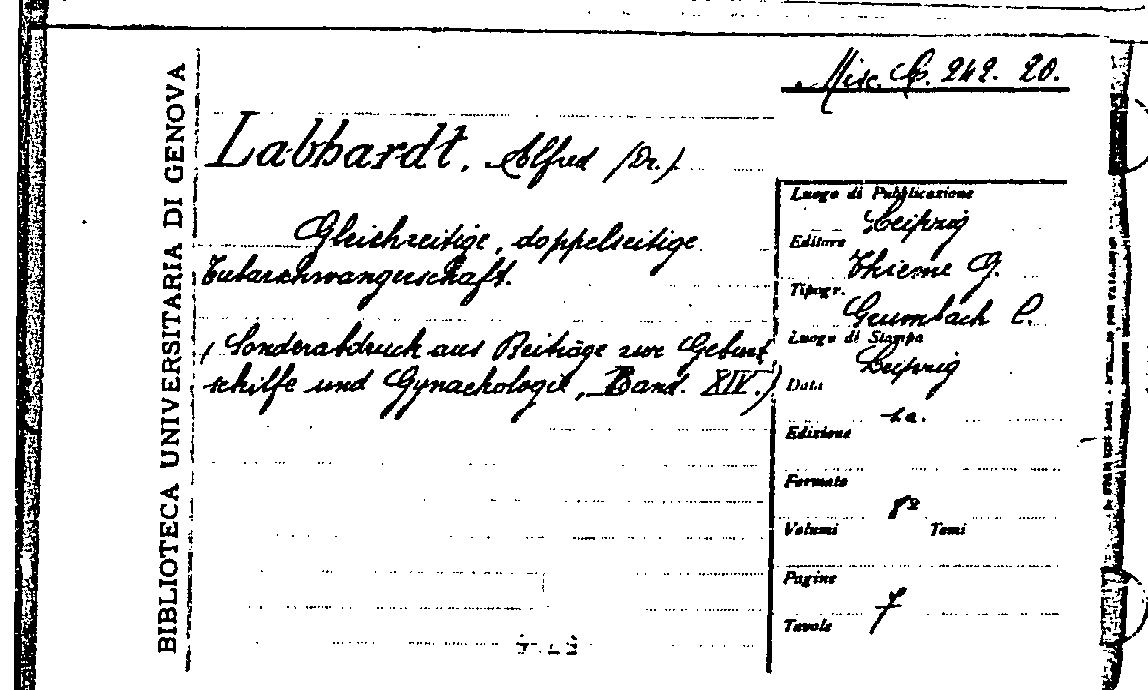 Misc. C. 242. 20.
BIBLIOTECA UNIVERSITARIA DI GENOVA
Labhardt, Alfred (Dr.).
Gleichzeitige, doppelseitige
Tubarschwangerschaft.
(Sonderabdruck aus Beiträge zur Geburt
schilfe und Gynaekologie, Band. XIV.)
Luogo di Pubblicazione
Leipzig
Editore
Thieme G.
Tipogr.
Grumbach C.
Luogo di Stampa
Leipzig
Data
s.a.
Edizione
Formato
8º
Volumi Tomi
Pagine
7
Tavole